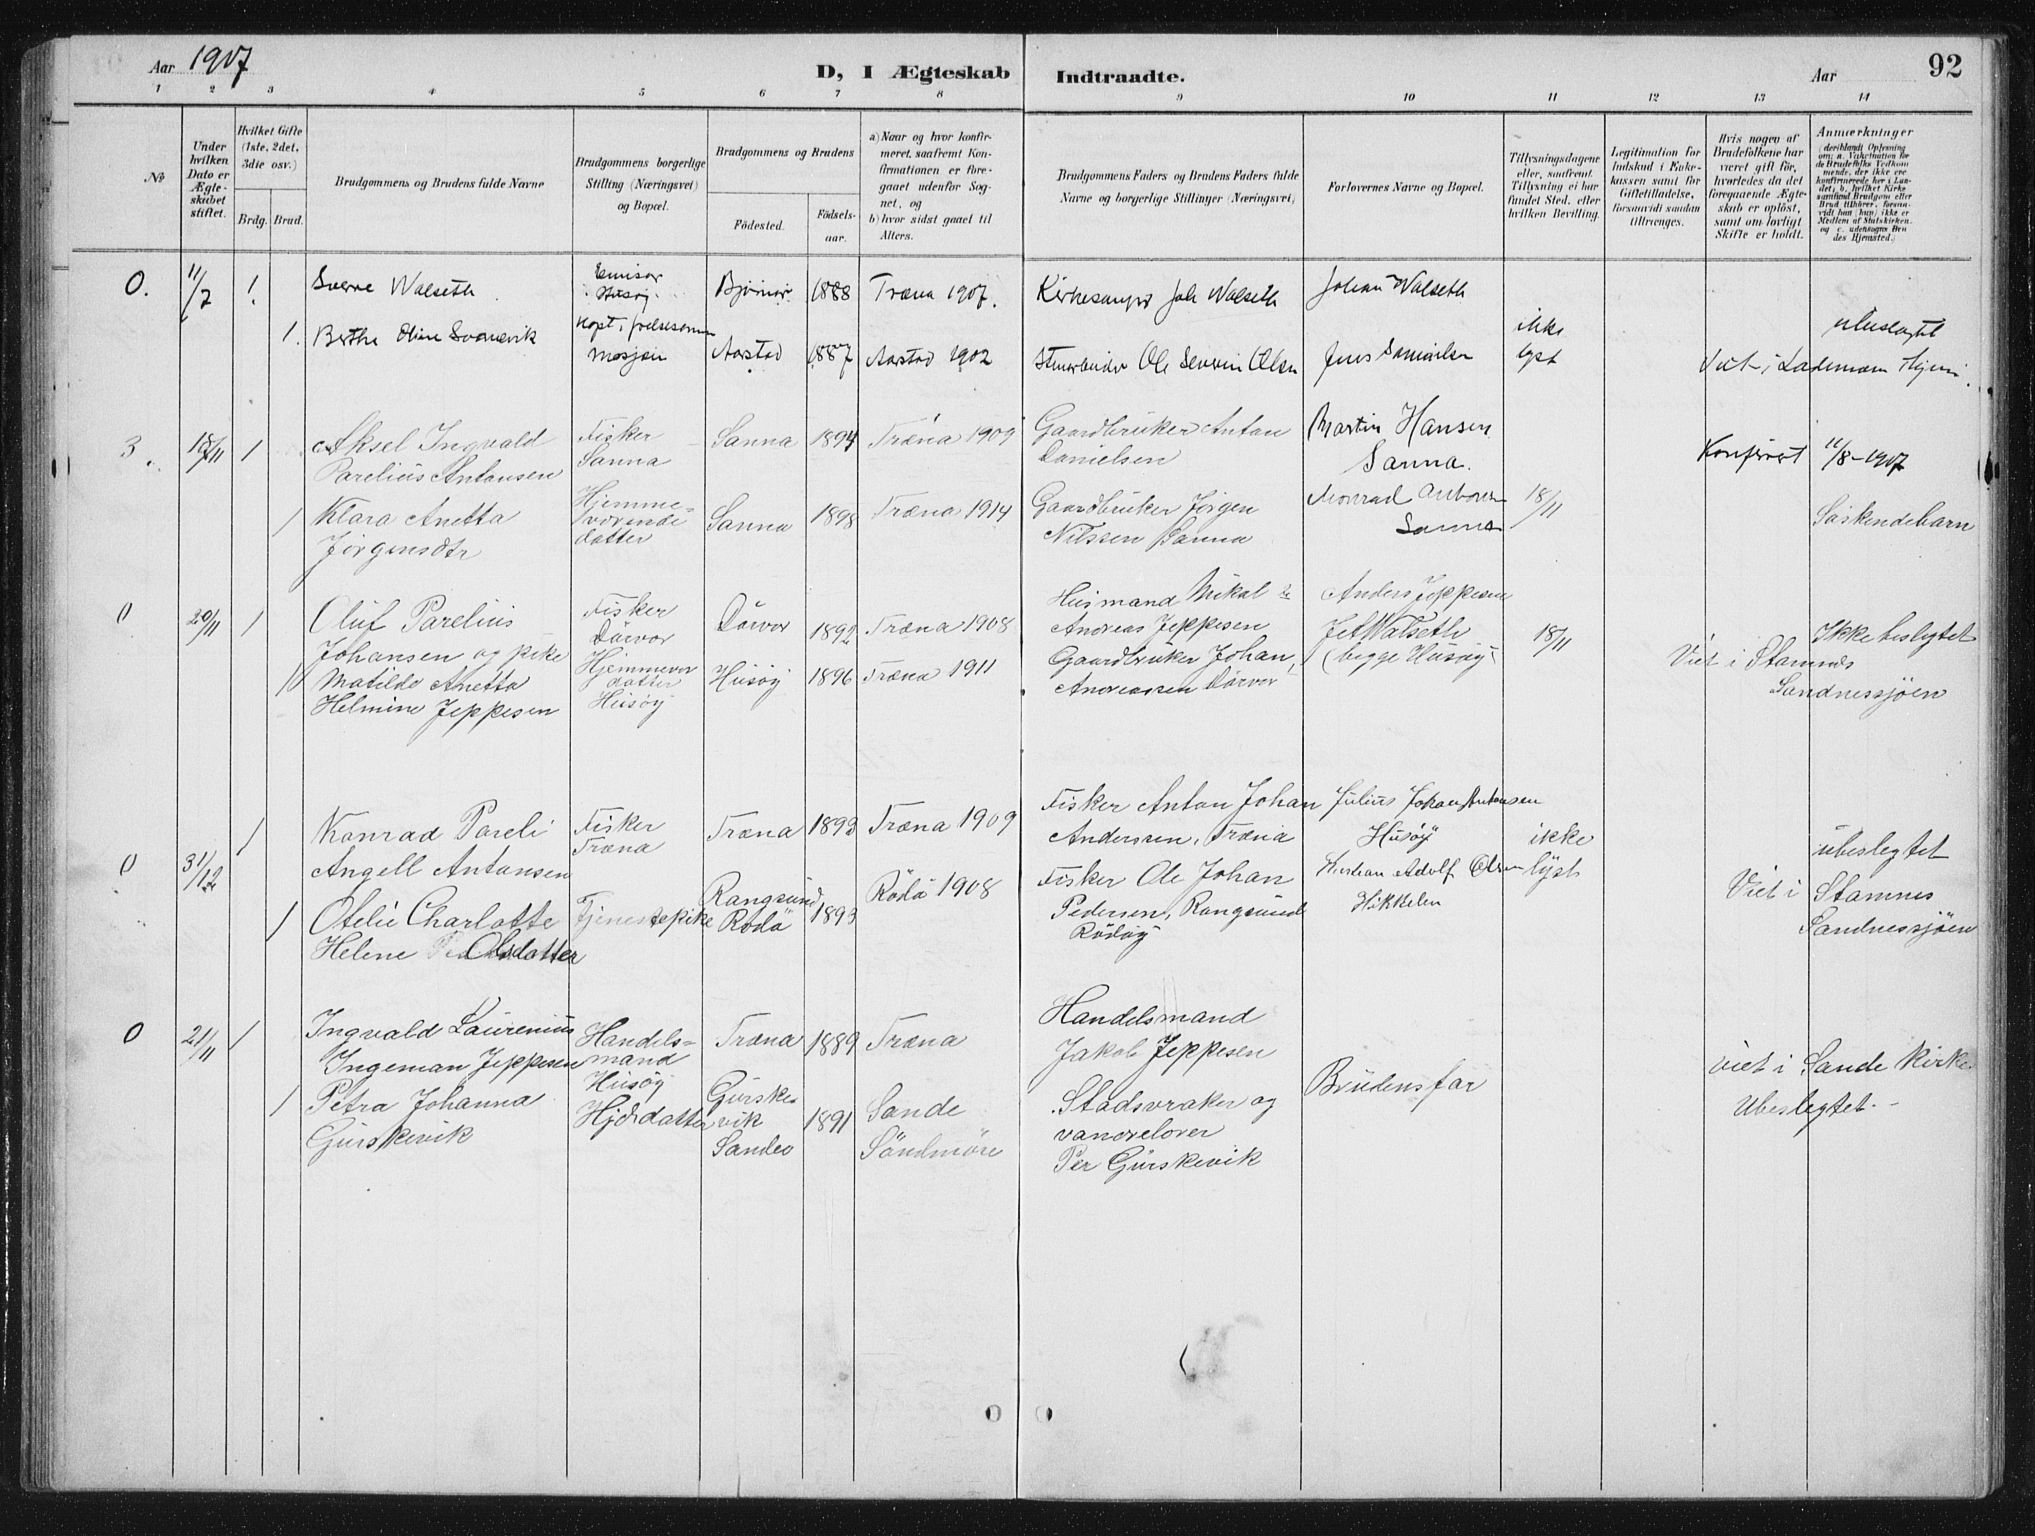 Aar 1917
D, I Ægteskab
Indtraadte.
Aar
92
1 2 3 4 5 6 7 8 9 10 11 12 13 14
№
Under hvilken Dato er Ægteskabet stiftet.
Hvilket Gifte (1ste, 2det, 3die osv.)
Brdg. Brud.
Brudgommens og Brudens fulde Navne
Brudgommens borgerlige Stilling (Næringsvei) og Bopæl.
Brudgommens og Brudens
Födested.
Födsels-aar.
a) Naar og hvor konfirmeret, saafremt Konfirmationen er foregaaet udenfor Sognet, og
b) hvor sidst gaaet til Alters.
Brudgommens Faders og Brudens Faders fulde Navne og borgerlige Stillinger (Næringsvei)
Forlovernes Navne og Bopæl.
Tillysningsdagene eller, saafremt Tillysning ei har fundet Sted, efter hvilken Bevilling.
Legitimation for Indskud i Enkekassen samt for Giftetilladelse, forsaavidt saadan tiltrænges.
Hvis nogen af Brudefolkene har været gift för, hvorledes da det foregaaende Ægteskab er oplöst, samt om lovligt Skifte er holdt.
Anmærkninger
0. 11/7 1. Sverre Walseth Emisær Husøy Bjørnør 1888 Træna 1907. Kirkesanger Joh Walseth Johan Walseth
1. Berthe Oline mosjøen Aarstad 1887 Aarstad 1902 Ole Severin Olsen Jens ikke lyst ubeslægtet
Viet i Hjem.
3. 18/11 1 Aksel Ingvald Fisker Sanna 1894 Træna 1909 Gaardbruker Anton Martin Hansen
Parelius Antonsen Sanna Danielsen Sanna. Konferert 11/8-1907
1 Klara Anetta Hjemme- Sanna 1898 Træna 1914 Gaardbruker Jörgen 18/11 Söskendebarn
Jörgensdtr værende datter Nilssen Sanna Sanna
0 20/11 1 Oluf Parelius Fisker Dörvær 1892 Træna 1908 Husmand Mikal Anders Jeppesen
Johansen og pike Dörvær Andreas Jeppesen Walseth 18/11 Ikke beslegtet
1 Matilde Anetta datter Husöy 1896 Træna 1911 Gaardbruker Johan (begge Husøy) Viet i Stamnes
Helmine Jeppesen Husöy Andreassen Dörvær Sandnessjöen
0 31/12 1 Konrad Pareli Fisker Træna 1893 Træna 1909 Fisker Anton Johan Julius Johan Antonsen
Angell Antonsen Træna Anderssen, Træna Husøy ikke ubeslegtet
1 Otelie Charlotte Tjenestepike Rangsund, Rödö 1893 Rödö 1908 Fisker Ole Johan Adolf Olsen lyst Viet i Stamnes
Helene Olsdatter Pedersen, Rangsund Sandnessjöen
Rödöy
0 21/11 1 Ingvald Laurenius Handels- Træna 1889 Træna Handelsmand
Ingeman Jeppesen mand Jakob Jeppesen viet i Sande Kirke
Husöy Brudens far
1 Petra Johanna datter Gurske- 1891 Sande Stadsvraker og Ubeslegtet.
Gurskevik vik Söndmöre
Sande Per Gurskevik